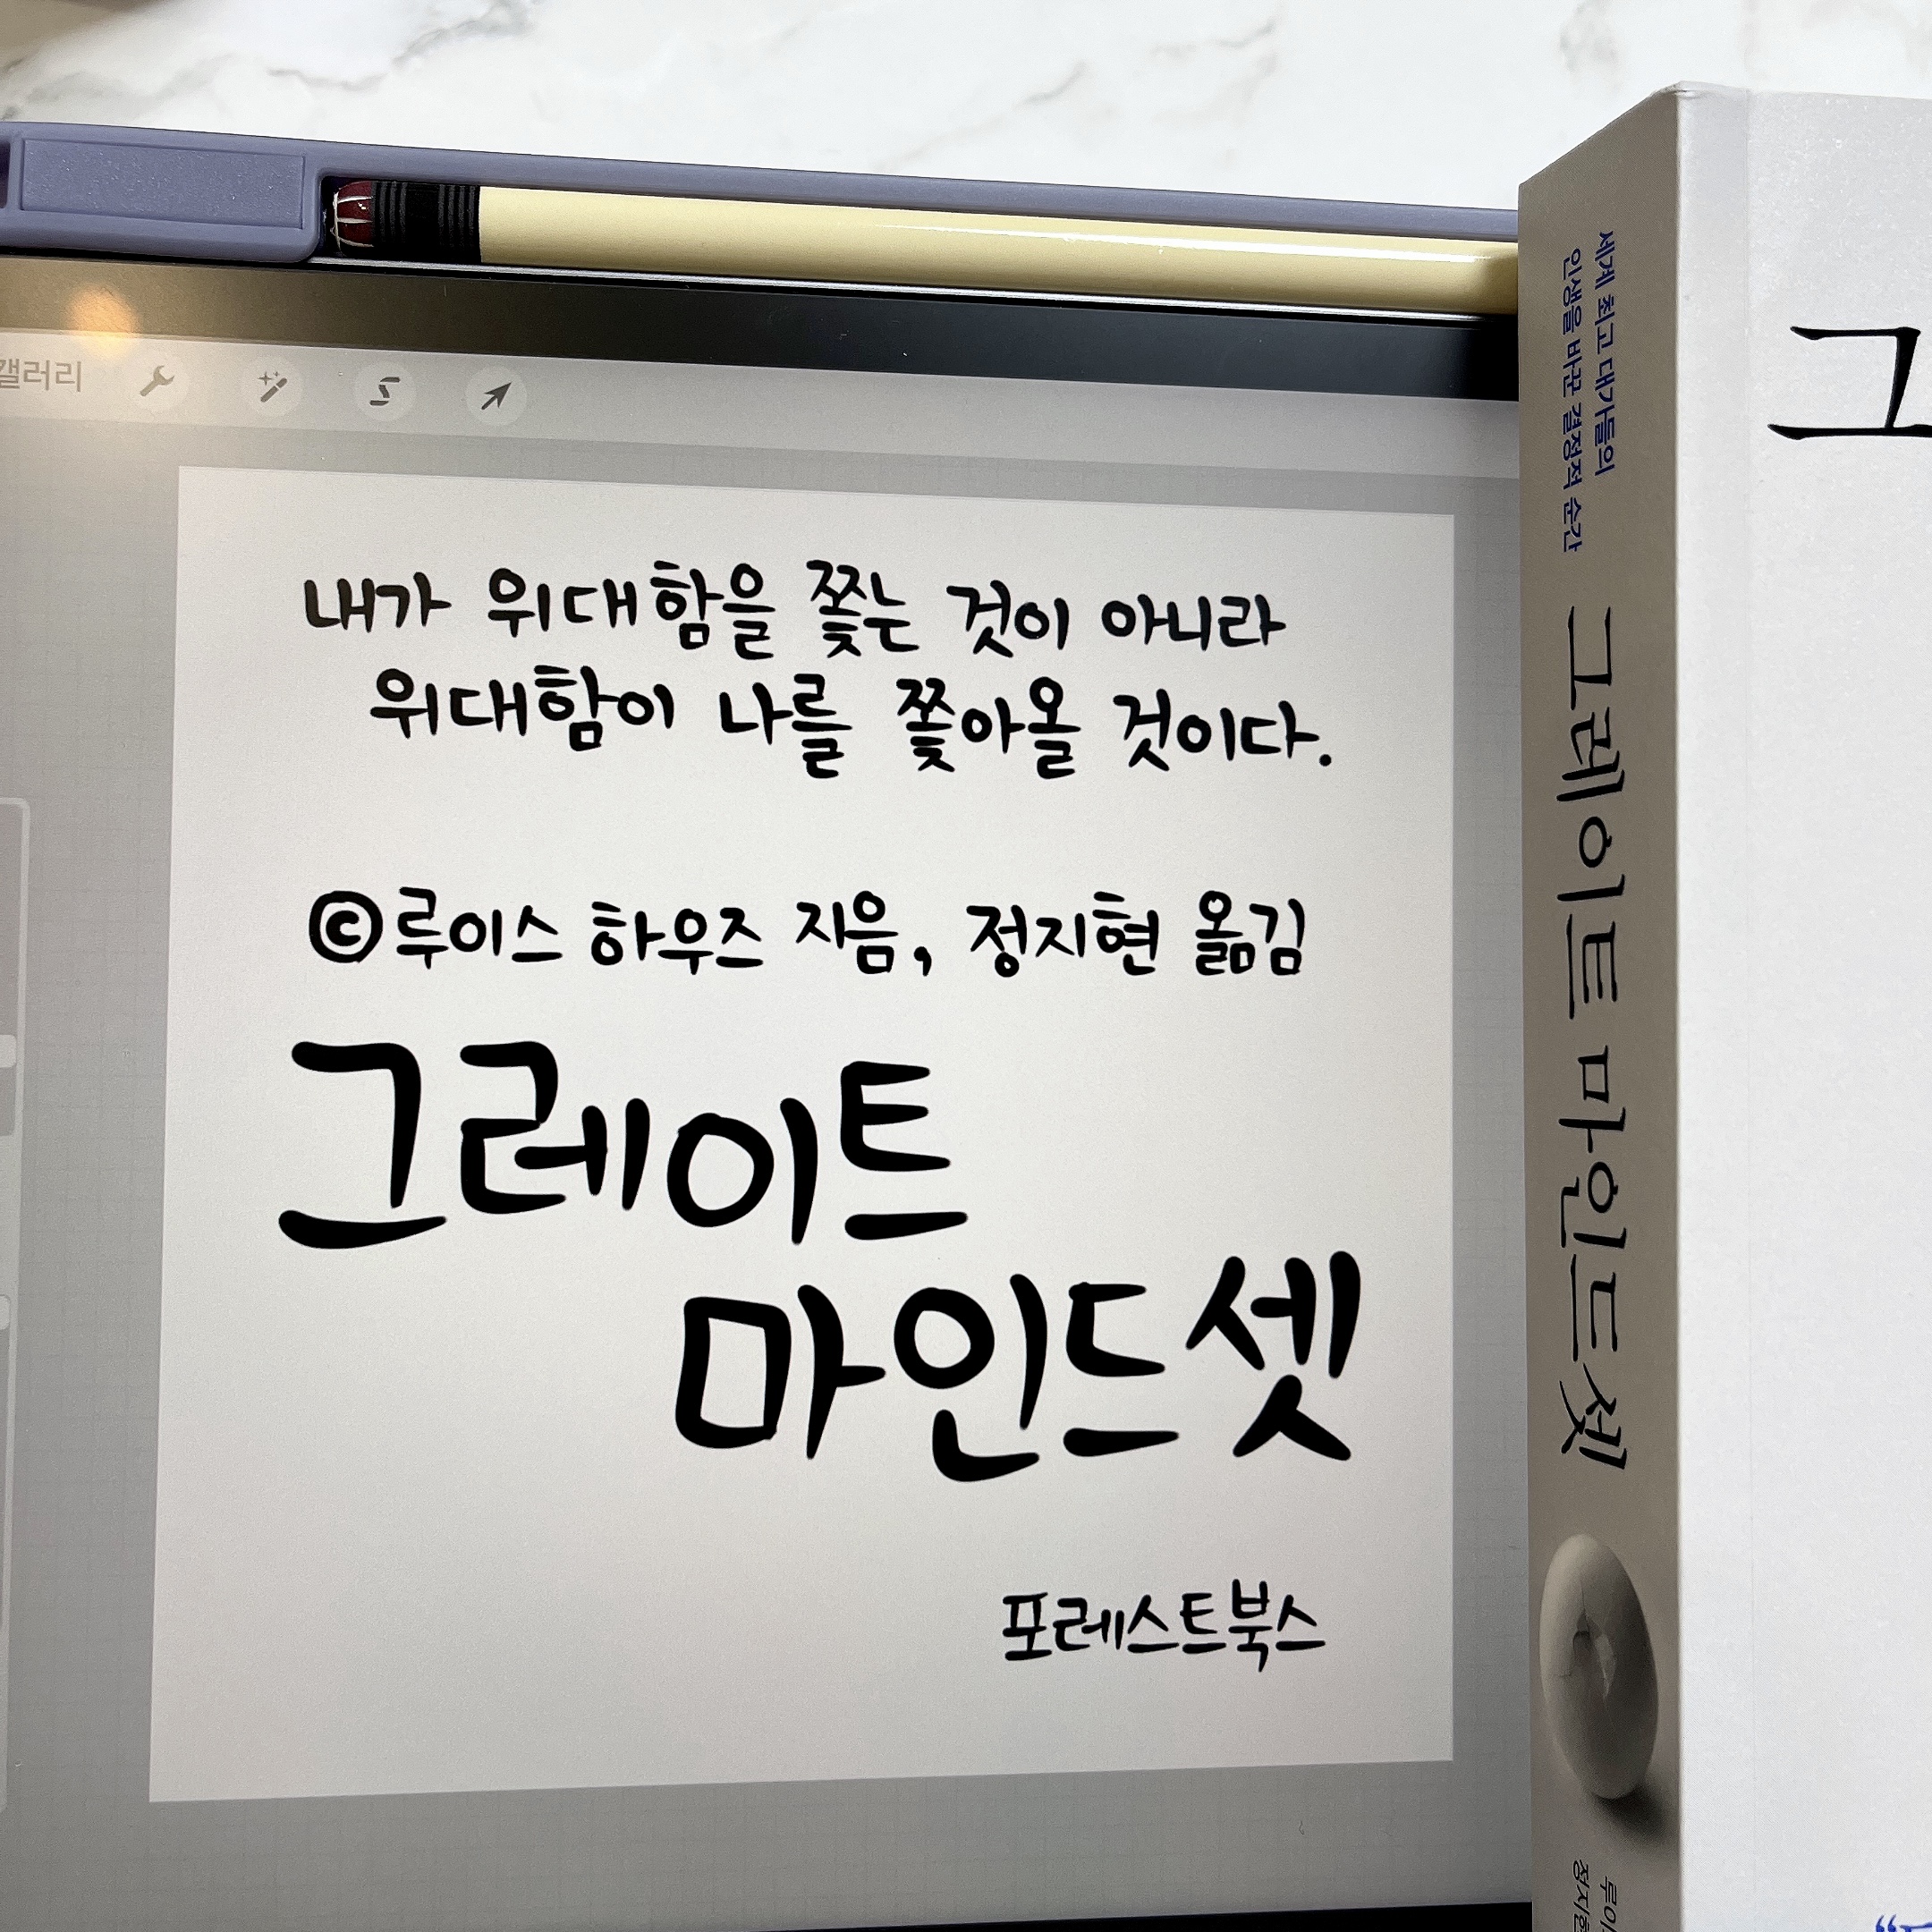 갤러리
내가 위대함을 쫓는 것이 아니라
위대함이 나를 쫓아올 것이다.
©루이스 하우즈 지음, 정지현 옮김
그레이트
마인드셋
포레스트북스
세계 최고 대가들의
인생을 바꾼 결정적 순간
그레이트 마인드셋
그